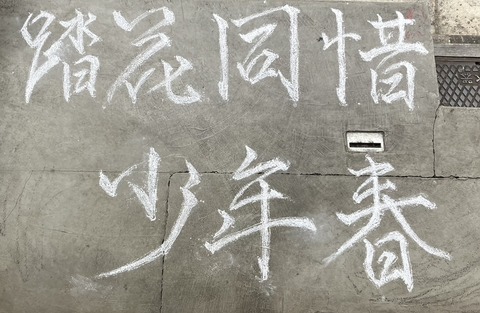 踏花同惜
少年春